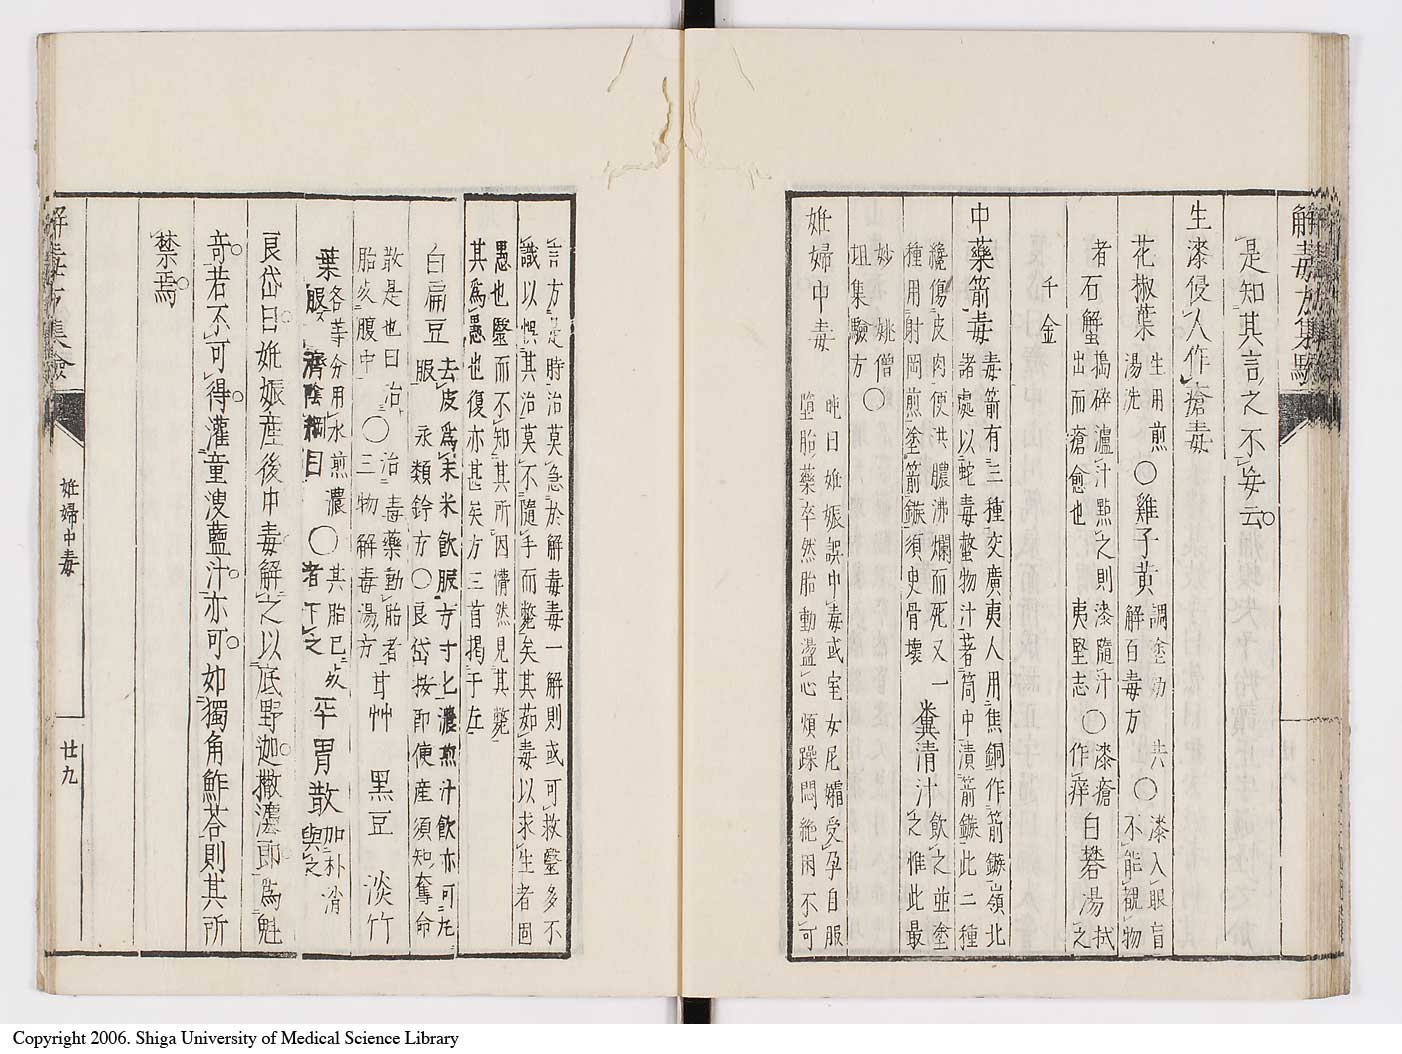 解毒方集驗
是知其言之不妄云
生漆侵人作瘡毒
花椒葉 生用煎
湯洗 ○雞子黃 調塗効
解百毒方 共○漆入眼盲
不能覩物
者石蟹 搗碎濾汁點之則漆隨汁
出而瘡愈也 夷堅志 ○漆瘡
作痒 白礬湯 拭
之
千金
中藥箭毒 毒箭有三種交廣夷人用焦銅作箭鏃嶺北
諸處以蛇毒螫物汁著筒中漬箭鏃此二種
纔傷皮肉便洪膿沸爛而死又一
種用射罔煎塗箭鏃須臾骨壞 糞清汁 飲之並塗
之惟此最
妙 姚僧
坦集驗方 ○
姙婦中毒 時日姙娠誤中毒或室女尼孀受孕自服
墮胎藥卒然胎動盪心煩躁悶絶困不可
言方是時治莫急於解毒毒一解則或可救毉多不
識以悞其治莫不隨手而斃矣其茹毒以求生者固
愚也毉而不知其所因懵然見其斃
其爲愚也復亦甚矣方三首揭于左
白扁豆 去皮爲末米飲服方寸匕濃煎汁飲亦可
服 永類鈴方○良岱按即使産須知奪命
散是也曰治○治毒藥動胎者
胎死腹中○三物解毒湯方 甘艸 黑豆 淡竹
葉 各等分用水煎濃
服 濟陰綱目 ○其胎已死
者下之 平胃散 加朴消
與之
良岱曰姙娠産後中毒解之以底野迦撒濃即爲魁
奇若不可得灌童溲藍汁亦可如獨角鮓荅則其所
禁焉
解毒方集驗
姙婦中毒
廿九
Copyright 2006. Shiga University of Medical Science Library